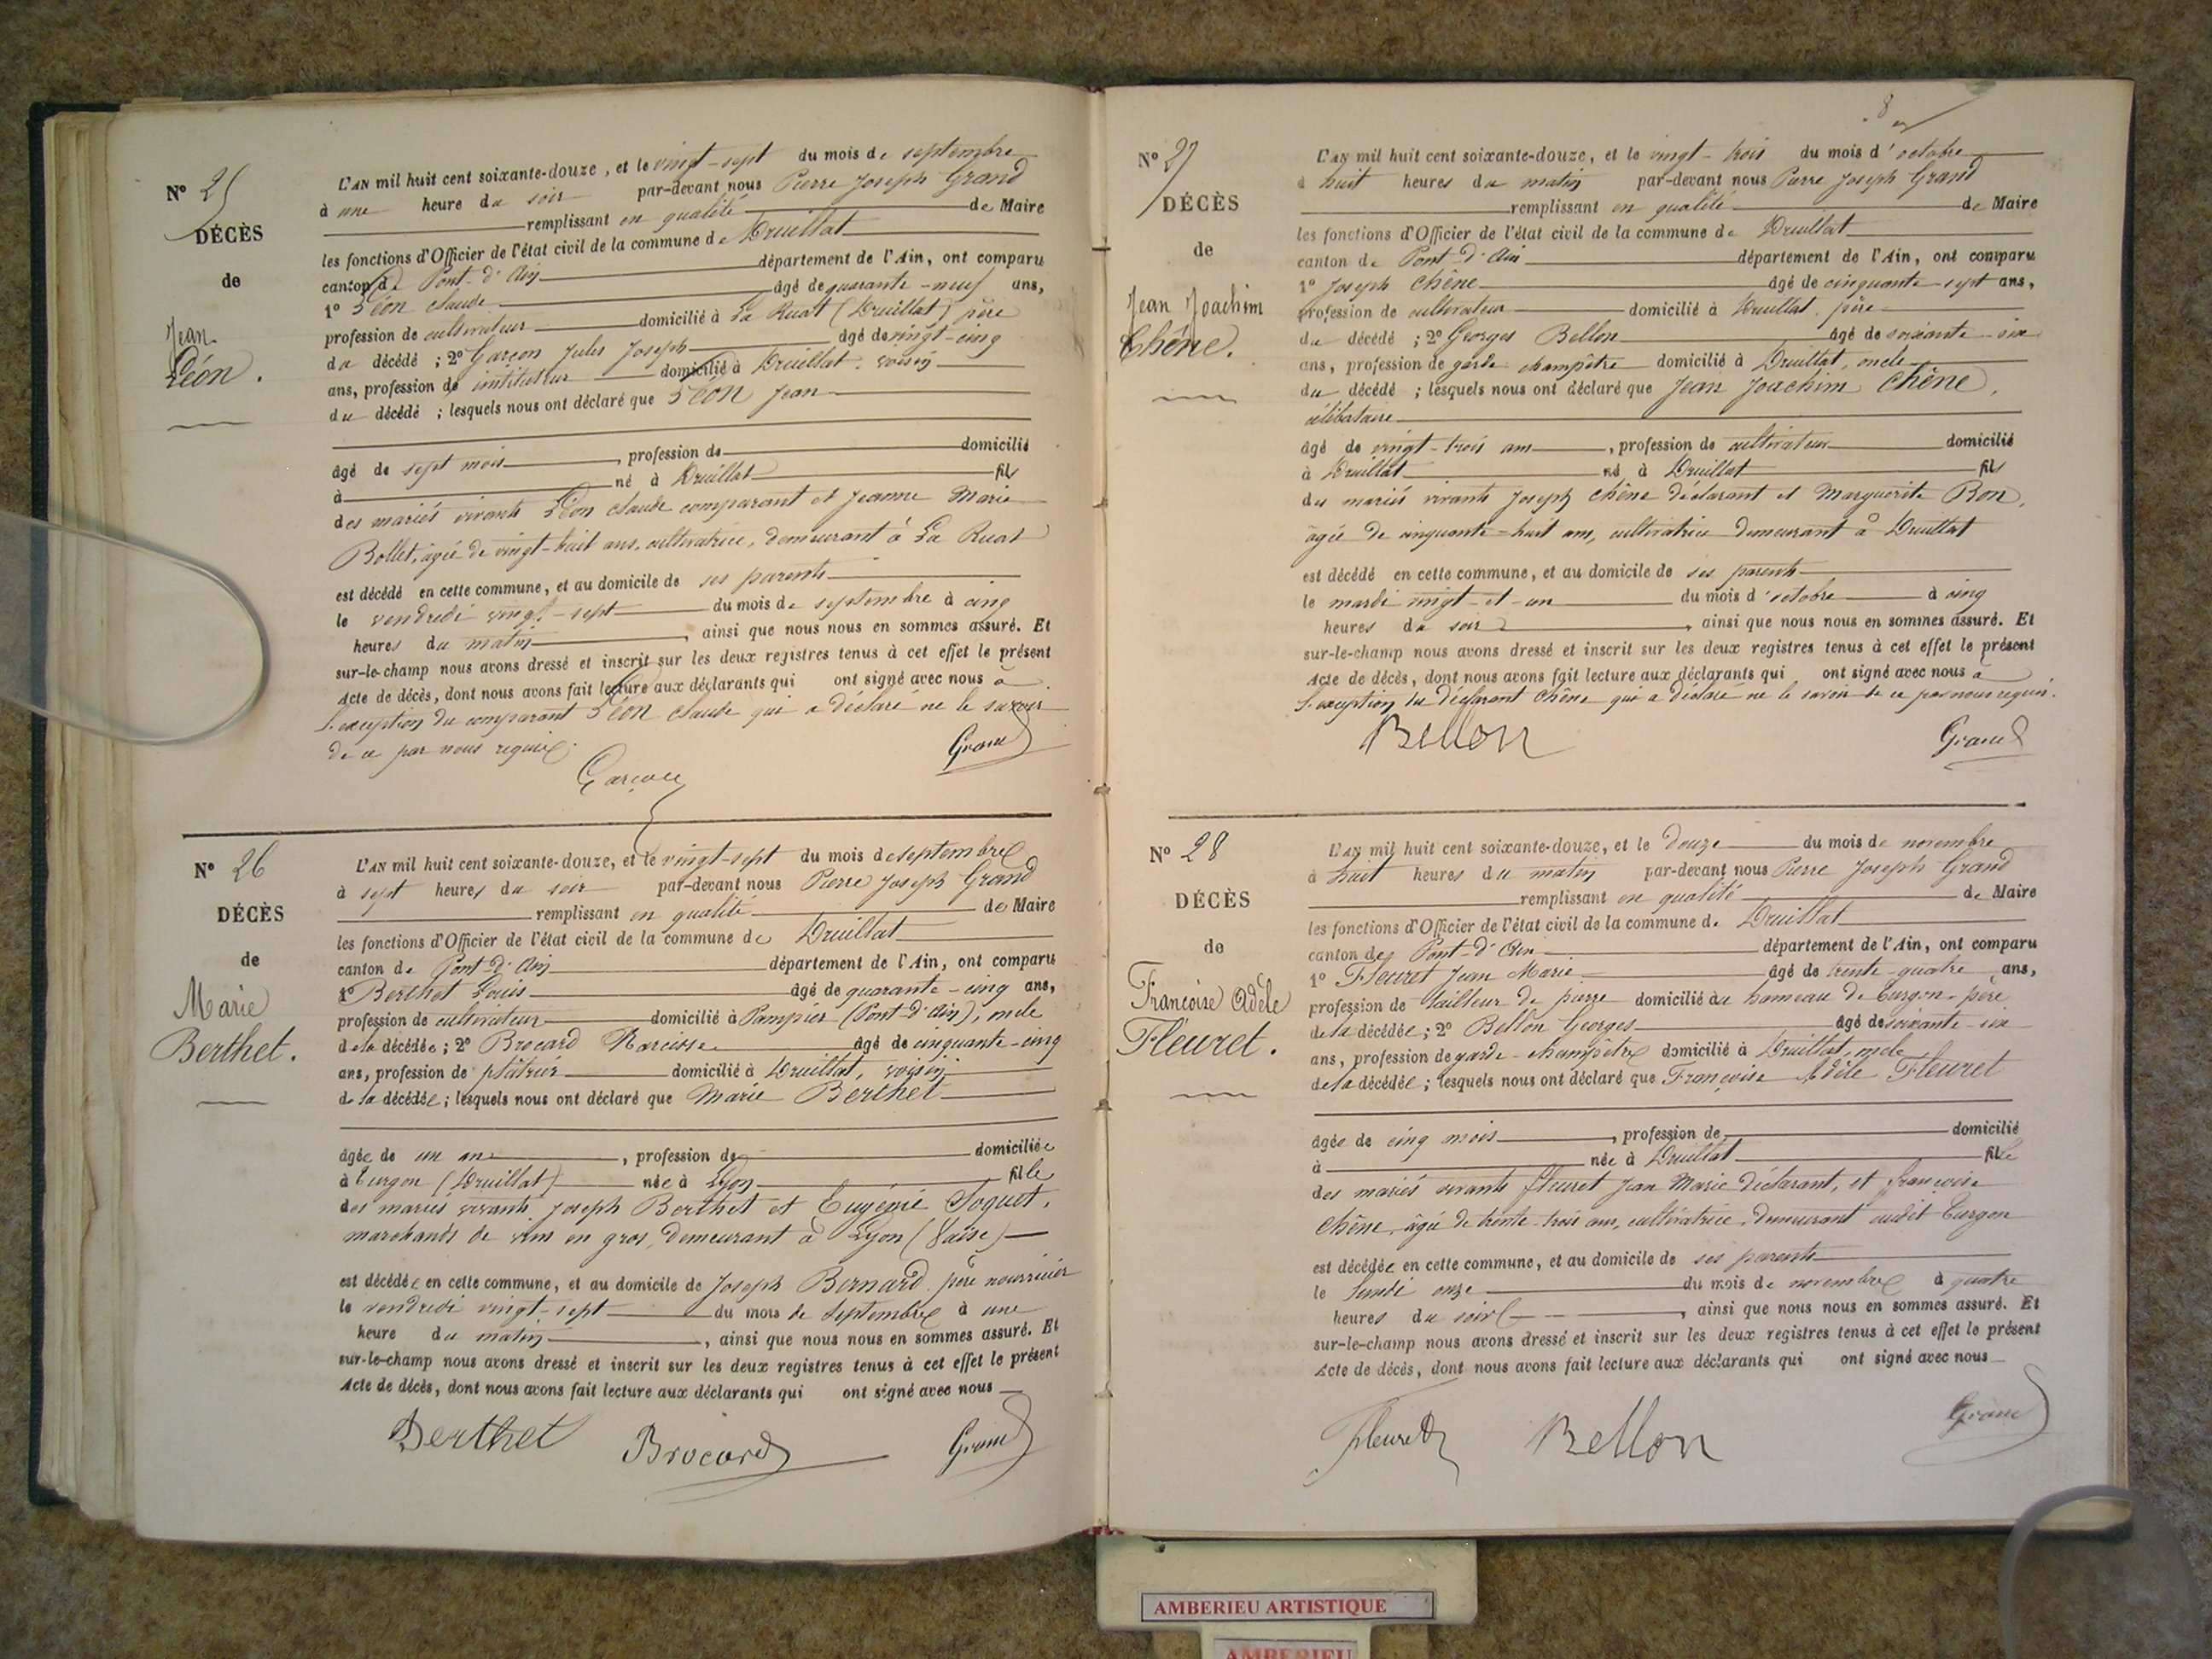 N° 25
DÉCÈS
de
Jean
Léon.
L'AN mil huit cent soixante-douze, et le vingt-sept du mois de septembre
à une heure du soir par-devant nous Pierre Joseph Grand
remplissant en qualité de Maire
les fonctions d'Officier de l'état civil de la commune de Druillat
canton de Pont-d'Ain département de l'Ain, ont comparu
1° Léon Claude âgé de quarante-neuf ans,
profession de cultivateur domicilié à La Ruat (Druillat) père
du décédé ; 2° Garçon Jules Joseph âgé de vingt-cinq
ans, profession de instituteur domicilié à Druillat, voisin
du décédé ; lesquels nous ont déclaré que Léon Jean
âgé de sept mois, profession de domicilié
à né à Druillat fils
des mariés vivants Léon Claude comparant et Jeanne Marie
Bollet, âgée de vingt-huit ans, cultivatrice, demeurant à La Ruat
est décédé en cette commune, et au domicile de ses parents
le vendredi vingt-sept du mois de septembre à cinq
heures du matin, ainsi que nous nous en sommes assuré. Et
sur-le-champ nous avons dressé et inscrit sur les deux registres tenus à cet effet le présent
Acte de décès, dont nous avons fait lecture aux déclarants qui ont signé avec nous à
l'exception du comparant Léon Claude qui a déclaré ne le savoir
de ce par nous requis.
Garçon
Grand
N° 26
DÉCÈS
de
Marie
Berthet.
L'AN mil huit cent soixante-douze, et le vingt-sept du mois de septembre
à sept heures du soir par-devant nous Pierre Joseph Grand
remplissant en qualité de Maire
les fonctions d'Officier de l'état civil de la commune de Druillat
canton de Pont-d'Ain département de l'Ain, ont comparu
1° Berthet Louis âgé de quarante-cinq ans,
profession de cultivateur domicilié à Pampier (Pont-d'Ain), oncle
de la décédée ; 2° Brocard Narcisse âgé de cinquante-cinq
ans, profession de plâtrier domicilié à Druillat, voisin
de la décédée ; lesquels nous ont déclaré que Marie Berthet
âgée de un an, profession de domiciliée
à Turgon (Druillat) née à Lyon fille
des mariés vivants Joseph Berthet et Eugénie Toquet,
marchands de vins en gros, demeurant à Lyon (Vaise)
est décédée en cette commune, et au domicile de Joseph Bernard père nourricier
le vendredi vingt-sept du mois de septembre à une
heure du matin, ainsi que nous nous en sommes assuré. Et
sur-le-champ nous avons dressé et inscrit sur les deux registres tenus à cet effet le présent
Acte de décès, dont nous avons fait lecture aux déclarants qui ont signé avec nous
Berthet
Brocard
Grand
8
N° 27
DÉCÈS
de
Jean Joachim
Chêne.
L'AN mil huit cent soixante-douze, et le vingt-trois du mois d'octobre
à huit heures du matin par-devant nous Pierre Joseph Grand
remplissant en qualité de Maire
les fonctions d'Officier de l'état civil de la commune de Druillat
canton de Pont-d'Ain département de l'Ain, ont comparu
1° Joseph Chêne âgé de cinquante-sept ans,
profession de cultivateur domicilié à Druillat, père
du décédé ; 2° Georges Bellon âgé de soixante-six
ans, profession de garde champêtre domicilié à Druillat, oncle
du décédé ; lesquels nous ont déclaré que Jean Joachim Chêne,
célibataire
âgé de vingt-trois ans, profession de cultivateur domicilié
à Druillat né à Druillat fils
des mariés vivants Joseph Chêne déclarant et Marguerite Bon,
âgée de cinquante-huit ans, cultivatrice demeurant à Druillat
est décédé en cette commune, et au domicile de ses parents
le mardi vingt-et-un du mois d'octobre à cinq
heures du soir, ainsi que nous nous en sommes assuré. Et
sur-le-champ nous avons dressé et inscrit sur les deux registres tenus à cet effet le présent
Acte de décès, dont nous avons fait lecture aux déclarants qui ont signé avec nous à
l'exception du déclarant Chêne qui a déclaré ne le savoir de ce par nous requis.
Bellon
Grand
N° 28
DÉCÈS
de
Françoise Adèle
Fleuret.
L'AN mil huit cent soixante-douze, et le douze du mois de novembre
à huit heures du matin par-devant nous Pierre Joseph Grand
remplissant en qualité de Maire
les fonctions d'Officier de l'état civil de la commune de Druillat
canton de Pont-d'Ain département de l'Ain, ont comparu
1° Fleuret Jean Marie âgé de trente-quatre ans,
profession de tailleur de pierre domicilié au hameau de Turgon, père
de la décédée ; 2° Bellon Georges âgé de soixante-six
ans, profession de garde-champêtre domicilié à Druillat, oncle
de la décédée ; lesquels nous ont déclaré que Françoise Adèle Fleuret
âgée de cinq mois, profession de domicilié
à née à Druillat fille
des mariés vivants Fleuret Jean Marie déclarant, et Françoise
Chêne, âgée de trente-trois ans, cultivatrice, demeurant audit Turgon
est décédée en cette commune, et au domicile de ses parents
le lundi onze du mois de novembre à quatre
heures du soir, ainsi que nous nous en sommes assuré. Et
sur-le-champ nous avons dressé et inscrit sur les deux registres tenus à cet effet le présent
Acte de décès, dont nous avons fait lecture aux déclarants qui ont signé avec nous
Fleuret
Bellon
Grand
AMBERIEU ARTISTIQUE
AMBERIEU